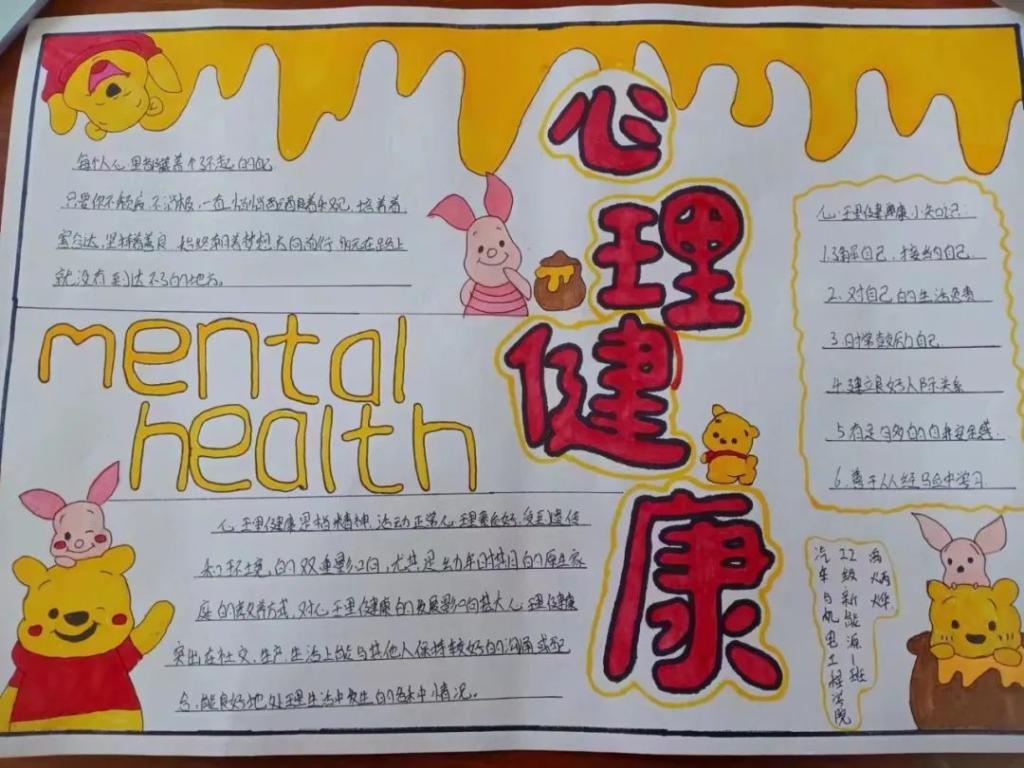 每个人心里都藏着个了不起的自己
只要你不颓废,不消极,一直悄悄酝酿着乐观,培养着
豁达,坚持着善良,始终朝着梦想大的前行,永远在路上
就没有到达不了的地方。
心理健康
mental
health
心理健康小知识:
1.了解自己,接纳自己
2.对自己的生活负责
3.时常鼓励自己
4.建立良好人际关系
5.有足够的自身安全感
6.善于从经验中学习
心理健康是指精神、活动正常、心理素质好,受到遗传
和环境,的双重影响,尤其是幼年时期的原生家
庭的教养方式,对心理健康的发展影响甚大,心理健康
突出在社交、生产、生活上能与其他人保持较好的沟通或配
合,能良好地处理生活中发生的各种情况。
汽车与机电工程学院
22级新能源一班